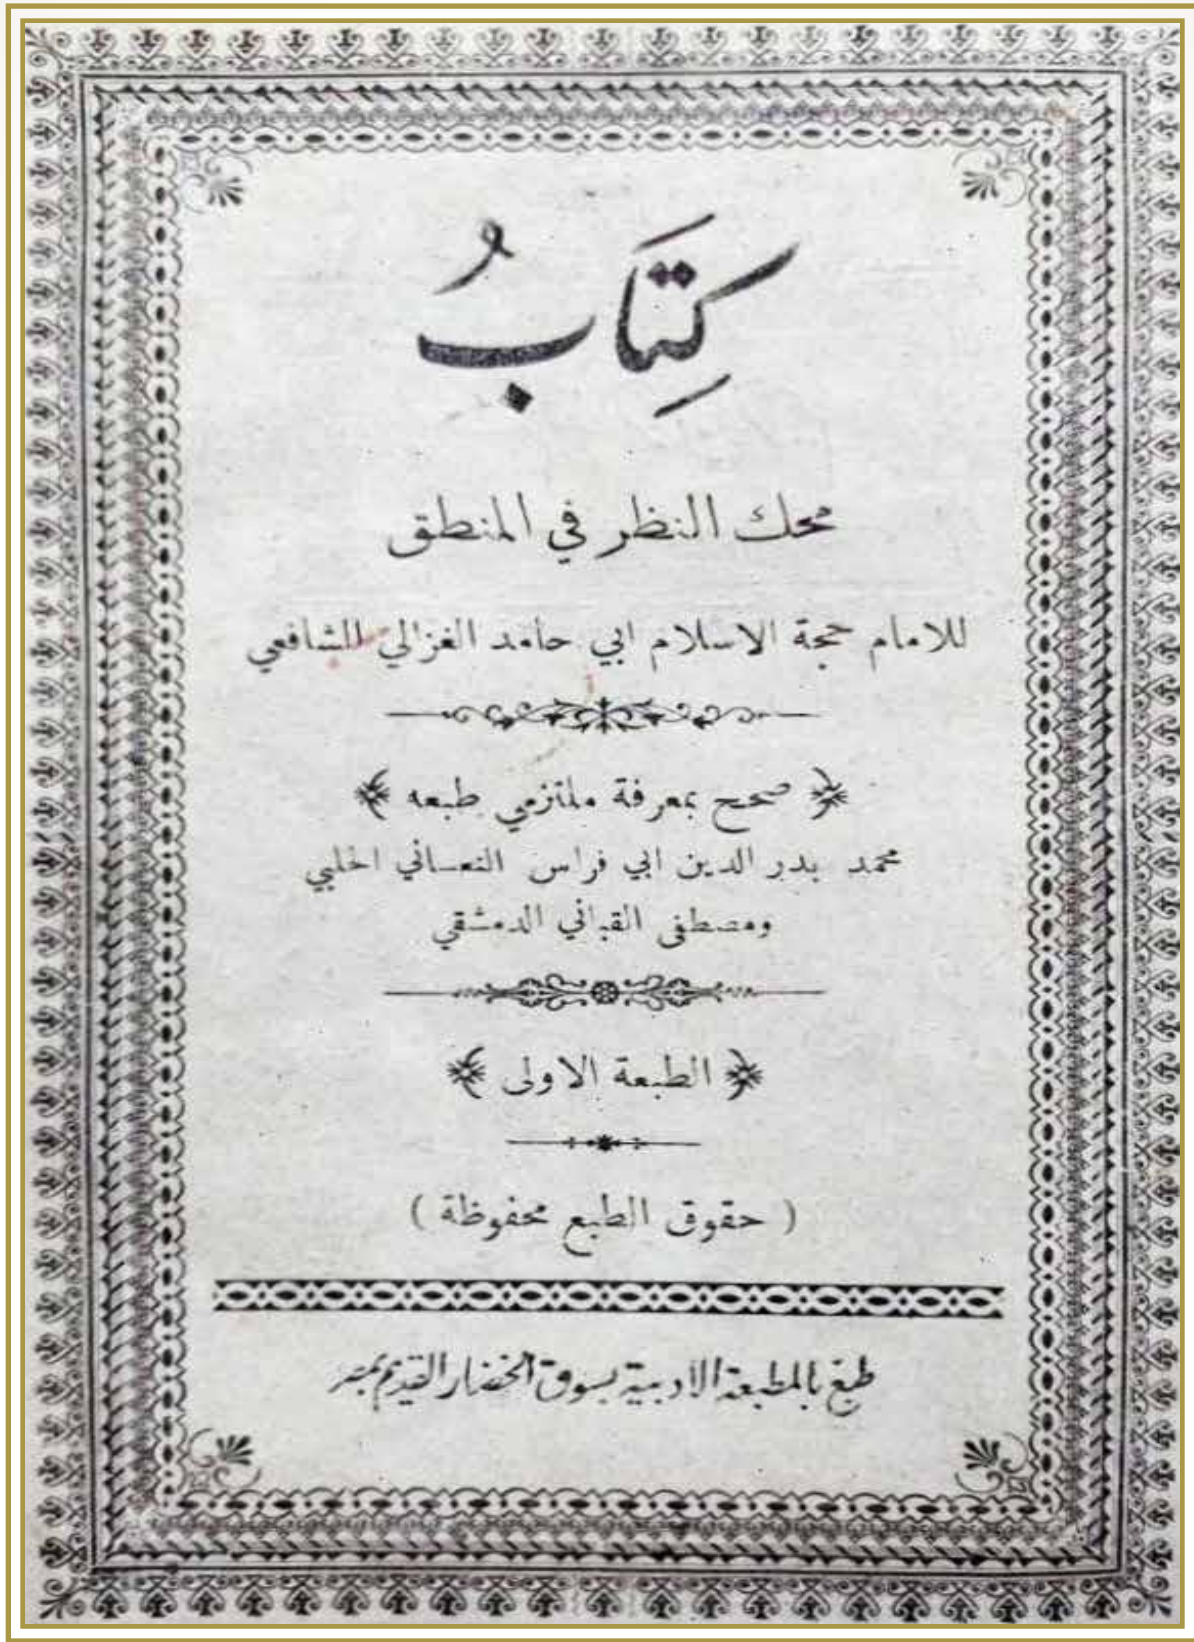 كِتَابُ
محك النظر في المنطق
للامام حجة الاسلام ابي حامد الغزالي الشافعي
صحح بمعرفة ملتزمي طبعه
محمد بدر الدين ابي فراس النعساني الحلبي
ومصطفى القباني الدمشقي
الطبعة الاولى
( حقوق الطبع محفوظة )
طبع بالمطبعة الادبية بسوق الخضار القديم بمصر